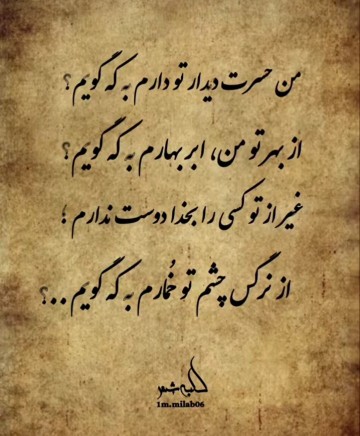 من حسرت دیدار تو دارم به که گویم؟
از بهر تو من، ابر بهارم به که گویم؟
غیر از تو کسی را بخدا دوست ندارم ؛
از نرگس چشم تو خُمارم به که گویم ..؟
کلبه شعر
1m.milab06